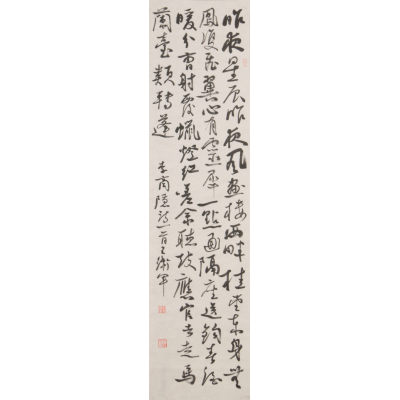 昨夜星辰昨夜風畫樓西畔桂堂東身無
鳳雙飛翼心有靈犀一點通隔座送鈎春酒
暖分曹射覆蠟燈紅嗟余聽鼓應官去走馬
蘭臺類轉蓬
李商隱詩一首王衛軍